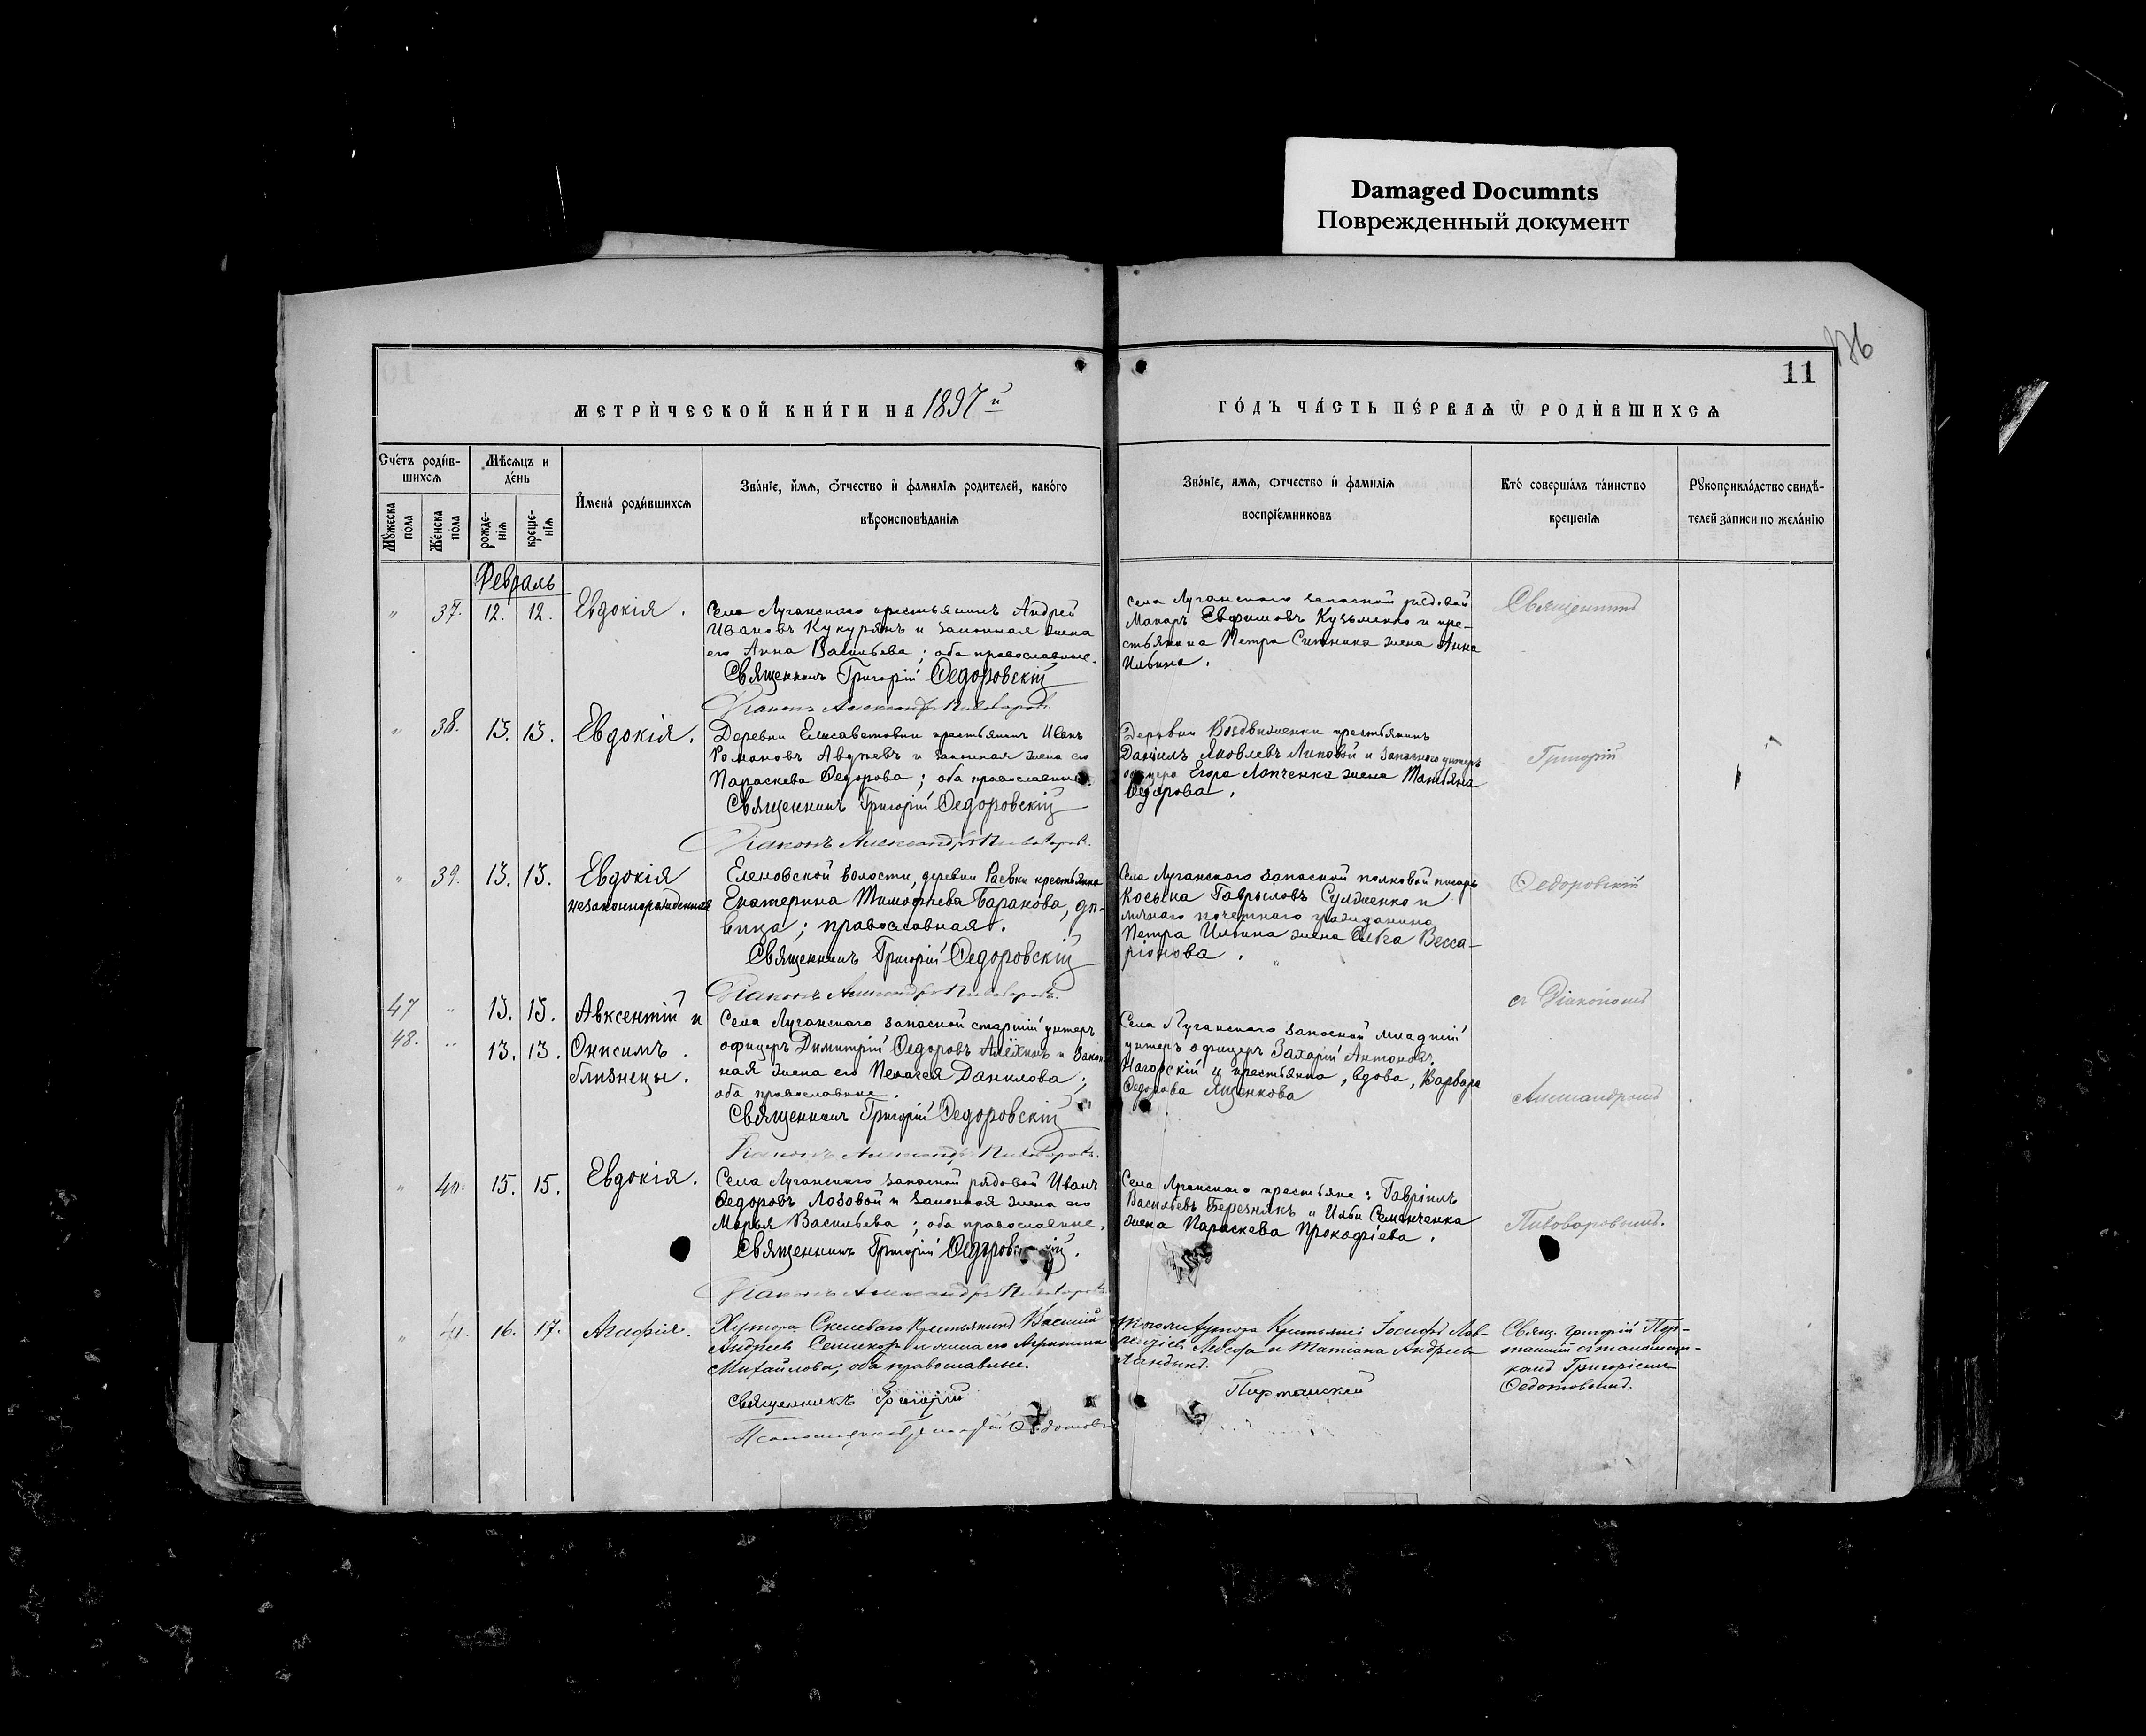 Damaged Documnts
Поврежденный документ
11
МЕТРИ́ЧЕСКОЙ КНИ́ГИ НА 1897 й
ГО́ДЪ ЧА́СТЬ ПЕ́РВАѦ Ѿ РОДИ́ВШИХСѦ
Сче́тъ роди́в-
шихсѧ
Мѣсѧцъ и
де́нь
И҆мена̀ роди́вшихсѧ
Зва́нїе, и҆́мѧ, ѻ҆́тчество и҆ фамилїѧ родителей, како́го
вѣроисповѣданїѧ
Зва́нїе, имѧ, ѻтчество и҆ фамилїѧ
воспрїе́мниковъ
Кто́ соверша́лъ та́инство
крещенїѧ
Рꙋкоприкла́дство свидѣ-
телей записи по жела́нїю
Мꙋ́жеска
пола
Же́нска
пола
рожде-
нїѧ
креще-
нїѧ
Февраль
" 37. 12. 12. Евдокія.
Села Луганскаго крестьянинъ Андрей
Ивановъ Кукурянъ и законная жена
его Анна Васильева; оба православные.
Священникъ Григорій Ѳедоровскій
Діаконъ Александръ Пивоваровъ.
Села Луганскаго запасной рядовой
Макаръ Евфимовъ Кузьменко и кре-
стьянина Петра Ситника жена Анна
Ильина.
Священникъ
" 38. 13. 13. Евдокія.
Деревни Елисаветовки крестьянинъ Иванъ
Романовъ и законная жена его
Параскева Ѳедорова; оба православные.
Священникъ Григорій Ѳедоровскій
Діаконъ Александръ Пивоваровъ.
Деревни Воздвиженки крестьянинъ
Даніилъ Яковлевъ Липовой и запасного унтеръ
офицера Егора Лопченка жена Татьяна
Ѳедорова.
Григорій
" 39. 13. 13. Евдокія
незаконнорожденная
Еленовской волости, деревни Раевки крестьянка
Екатерина Тимофеева Баранова, дѣ-
вица; православная.
Священникъ Григорій Ѳедоровскій
Діаконъ Александръ Пивоваровъ.
Села Луганскаго запасной полковой писарь
Косьма Гавриловъ Сулженко и
личнаго почетнаго гражданина
Петра Ильина жена Ольга Весса-
ріонова.
Ѳедоровскій
47 " 13. 13. Авксентій и
48. " 13. 13. Онисимъ.
близнецы.
Села Луганскаго запасной старшій унтеръ
офицеръ Димитрій Ѳедоровъ Алёхинъ и закон-
ная жена его Пелагея Данилова;
оба православные.
Священникъ Григорій Ѳедоровскій
Діаконъ Александръ Пивоваровъ.
Села Луганскаго запасной младшій
унтеръ офицеръ Захарій Антоновъ
Нагорскій и крестьянка, вдова, Варвара
Ѳедорова Яценкова
съ Діакономъ
Александромъ
" 40. 15. 15. Евдокія.
Села Луганскаго запасной рядовой Иванъ
Ѳедоровъ Лозовой и законная жена его
Марья Васильева; оба православные.
Священникъ Григорій Ѳедоровскій.
Діаконъ Александръ Пивоваровъ
Села Луганскаго крестьяне: Гавріилъ
Васильевъ Березнякъ и Ильи Семенченка
жена Параскева Прокофіева.
Пивоваровымъ.
" 41. 16. 17. Агафія.
Хутора Скелеваго крестьянинъ Василій
Андреевъ и жена его
Михайлова; оба православные.
Священникъ Григорій
Псаломщикъ Григорій Ѳедотовъ
того хутора Крестьяне Іосифъ Лав-
рентіевъ и Татіана Андреева
Портанскій
Свящ. Григорій Пор-
танскій съ псаломщи-
комъ Григоріемъ
Ѳедотовымъ.